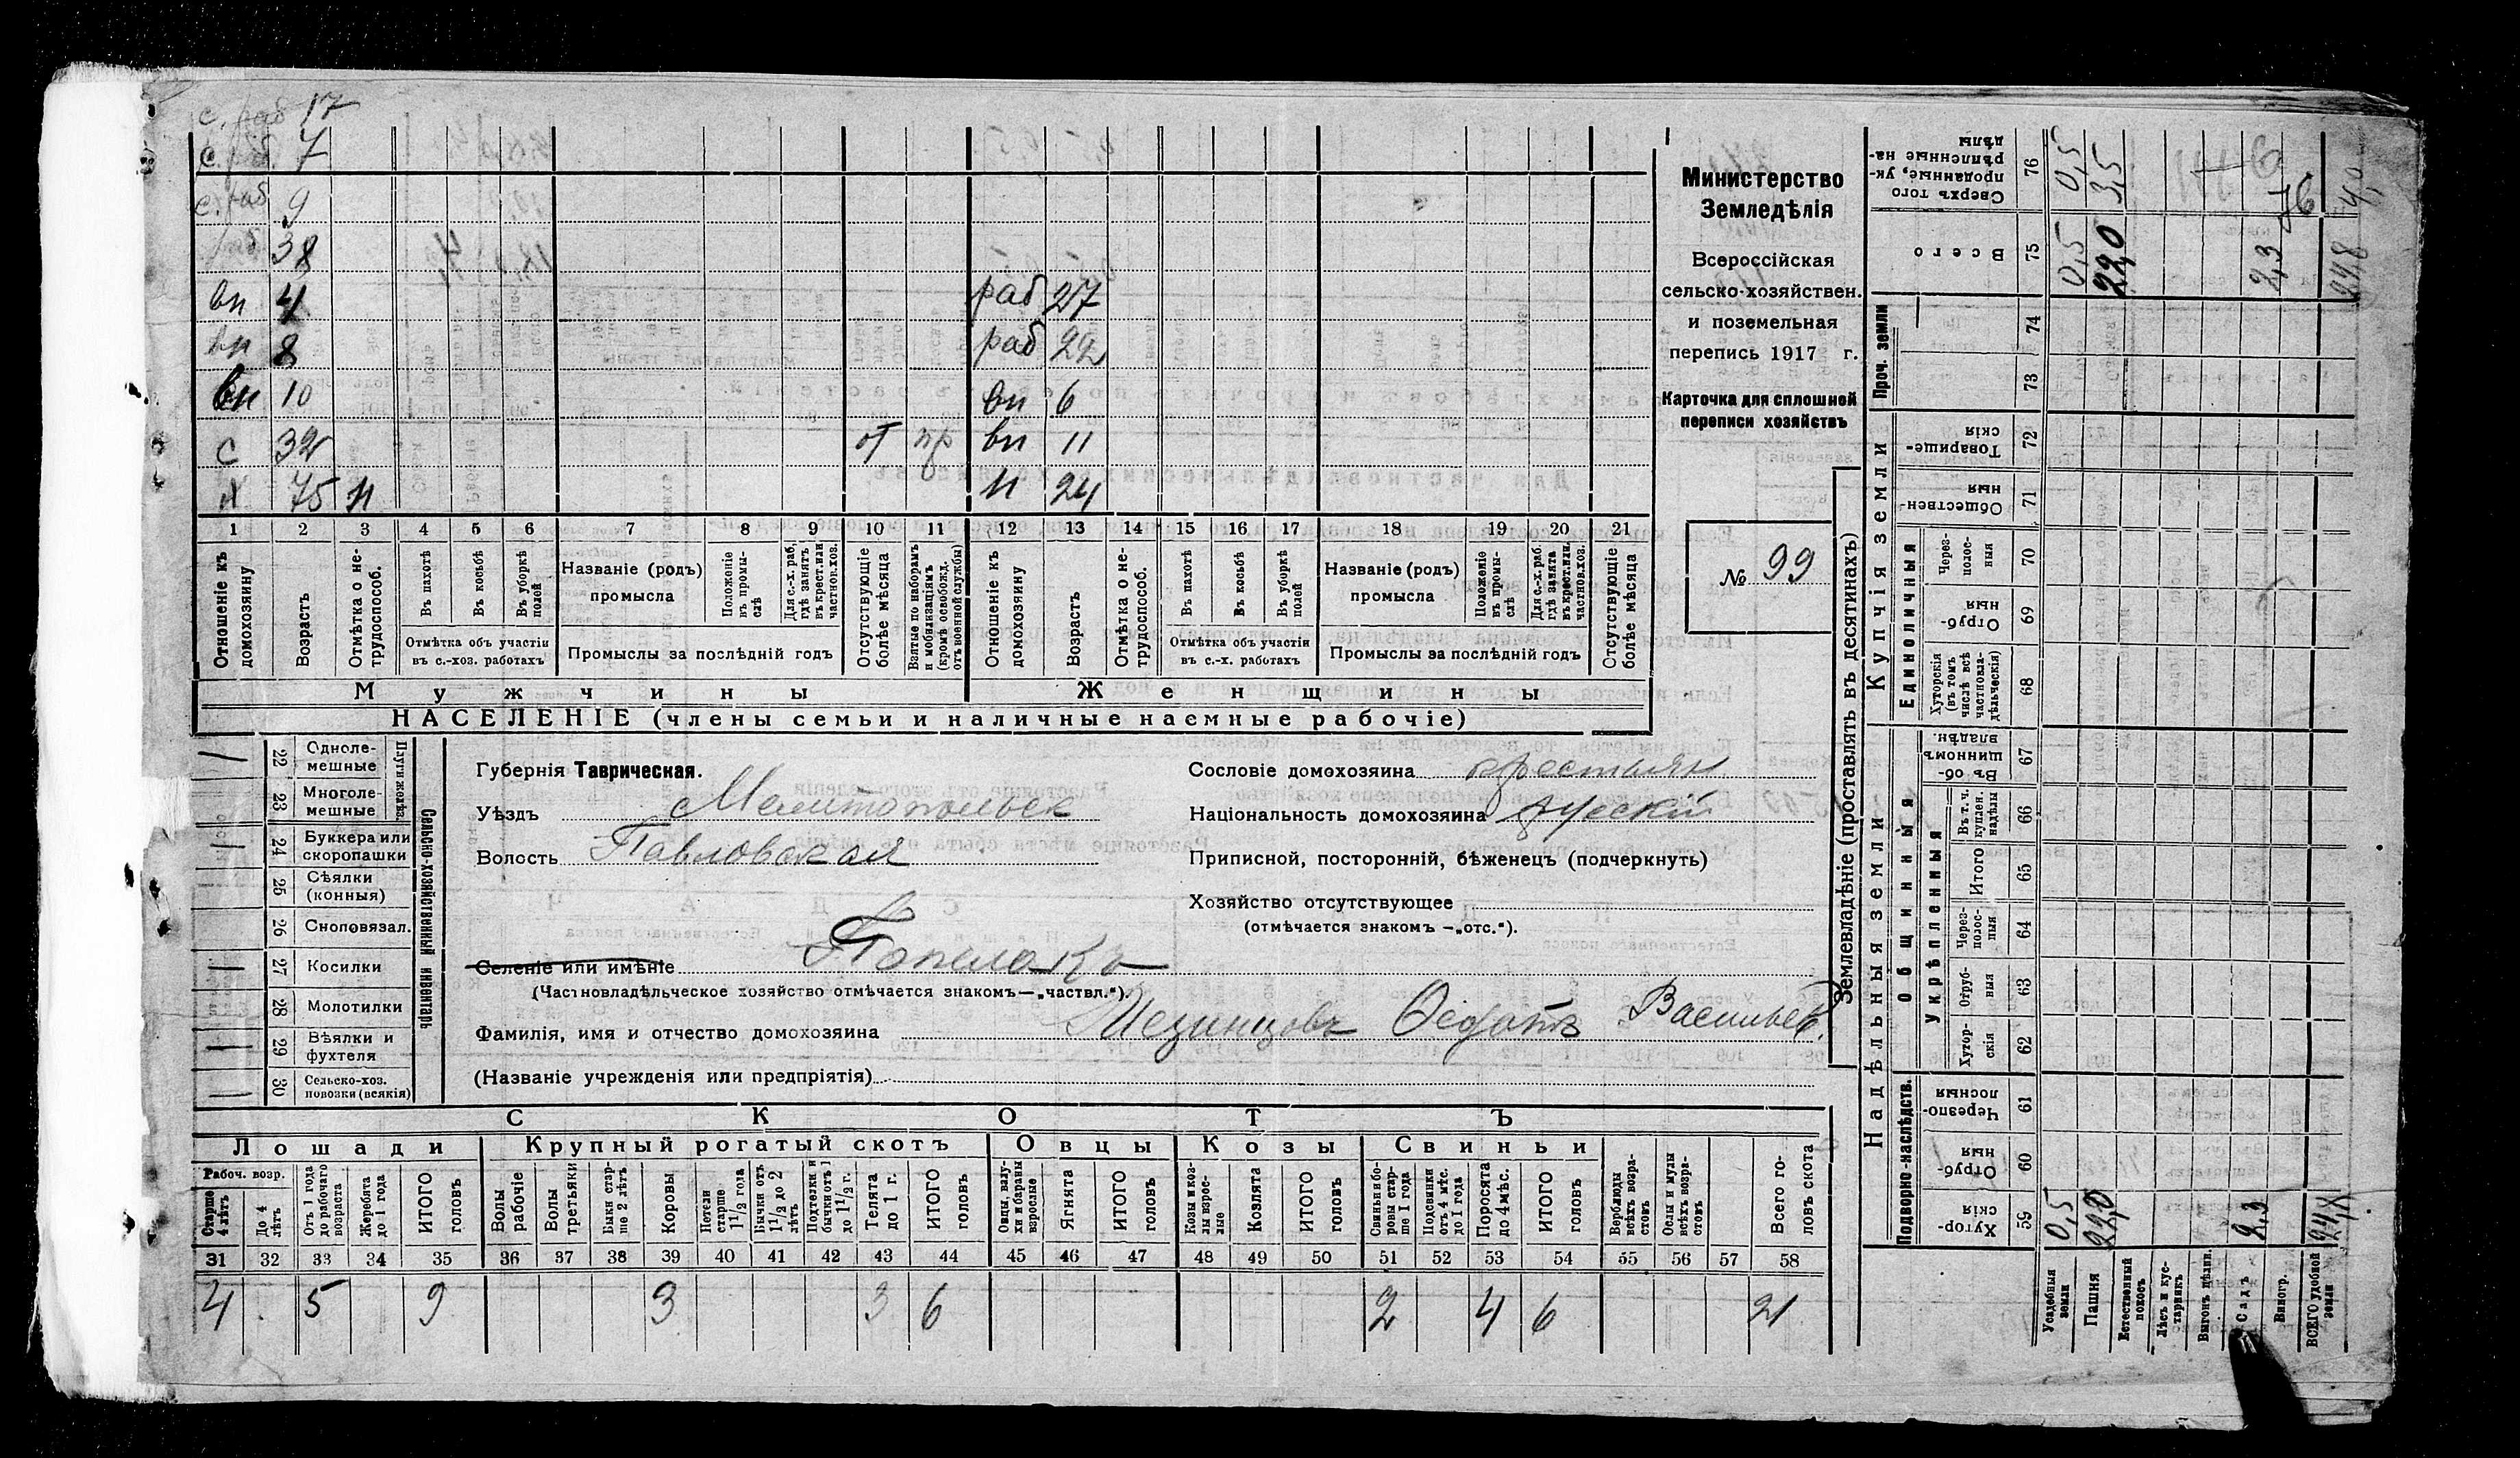 с. раб 17
с. раб. 7
с. раб 9
раб 38
вн 4 раб 27
вн 8 раб 22
вн 10 вн 6
с 32 от пр вн 11
Х 75 н н 24
1 2 3 4 5 6 7 8 9 10 11 12 13 14 15 16 17 18 19 20 21
Отношеніе къ домохозяину
Возрастъ
Отмѣтка о не-трудоспособ.
Въ пахотѣ
Въ косьбѣ
Въ уборкѣ полей
Отмѣтка объ участіи въ с.-хоз. работахъ
Названіе (родъ) промысла
Положеніе въ промы-слѣ
Для с.-х. раб. гдѣ занятъ въ крест. или частнов. хоз.
Промыслы за послѣдній годъ
Отсутствующіе болѣе мѣсяца
Взятые по наборамъ и мобилизаціямъ (кромѣ освобожд. отъ военной службы)
Отношеніе къ домохозяину
Возрастъ
Отмѣтка о не-трудоспособ.
Въ пахотѣ
Въ косьбѣ
Въ уборкѣ полей
Отмѣтка объ участіи въ с.-х. работахъ
Названіе (родъ) промысла
Положеніе въ промы-слѣ
Для с.-х. раб. гдѣ занята въ крест. или частнов. хоз.
Промыслы за послѣдній годъ
Отсутствующіе болѣе мѣсяца
Мужчины Женщины
НАСЕЛЕНІЕ (члены семьи и наличные наемные рабочіе)
Министерство
Земледѣлія
Всероссійская
сельско-хозяйствен.
и поземельная
перепись 1917 г.
Карточка для сплошной
переписи хозяйствъ
№ 99
Сельско-хозяйственный инвентарь
Плуги желѣз.
22 Одноле-мешные
23 Многоле-мешные
24 Буккера или скоропашки
25 Сѣялки (конныя)
26 Сноповязал.
27 Косилки
28 Молотилки
29 Вѣялки и фухтеля
30 Сельско-хоз. повозки (всякія)
Губернія Таврическая.
Уѣздъ Мелитопольск
Волость Павловская
Селеніе или имѣніе
(Частновладѣльческое хозяйство отмѣчается знакомъ—„частвл.“).
Фамилія, имя и отчество домохозяина Мезинцовъ Ѳедотъ Васильев.
(Названіе учрежденія или предпріятія)
Сословіе домохозяина крестьян
Національность домохозяина русскій
Приписной, посторонній, бѣженецъ (подчеркнуть)
Хозяйство отсутствующее
(отмѣчается знакомъ —„отс.“).
СКОТЪ
Лошади Крупный рогатый скотъ Овцы Козы Свиньи
Рабоч. возр.
Старше 4 лѣтъ
До 4 лѣтъ
Отъ 1 года до рабочаго возраста
Жеребята до 1 года
ИТОГО головъ
Волы рабочіе
Волы третьяки
Быки стар-ше 2 лѣтъ
Коровы
Нетели старше 1½ года
Бычки отъ 1½ до 2 лѣтъ
Подтелки и бычки отъ 1 до 1½ г.
Телята до 1 г.
ИТОГО головъ
Овцы, валу-хи и бараны взрослые
Ягнята
ИТОГО головъ
Козы и коз-лы взрос-лые
Козлята
ИТОГО головъ
Свиньи и бо-ровы стар-ше 1 года
Подсвинки отъ 4 мѣс. до 1 года
Поросята до 4 мѣс.
ИТОГО головъ
Верблюды всѣхъ возра-стовъ
Ослы и мулы всѣхъ возра-стовъ
Всего го-ловъ скота
31 32 33 34 35 36 37 38 39 40 41 42 43 44 45 46 47 48 49 50 51 52 53 54 55 56 57 58
4 5 9 3 3 6 2 4 6 21
Землевладѣніе (проставлять въ десятинахъ)
Надѣльныя земли
Купчія земли
Проч. земли
Подворно-наслѣдств.
Общинныя
Укрѣпленныя
Единоличныя
Сверхъ того проданные, ук-рѣпленные на-дѣлы 76 0,5 3,5 4,0
Всего 75 0,5 22,0 2,3 24,8
74
73
Товарище-скія 72
Обществен-ныя 71
Через-полос-ныя 70
Отруб-ныя 69
Хуторскія (въ томъ числѣ всѣ частновла-дѣльческія) 68
Въ об-щинномъ владѣн. 67
Въ т. ч. куплен. надѣлы 66
Итого 65
Через-полос-ныя 64
Отруб-ныя 63
Хутор-скія 62
Черезпо-лосныя 61
Отруб-ныя 60
Хутор-скія 59 0,5 22,0 2,3 24,8
Усадебныя земли
Пашня
Естественный покосъ
Лѣсъ и кус-тарникъ
Выгонъ цѣлин.
Садъ
Виногр.
ВСЕГО удобной земли